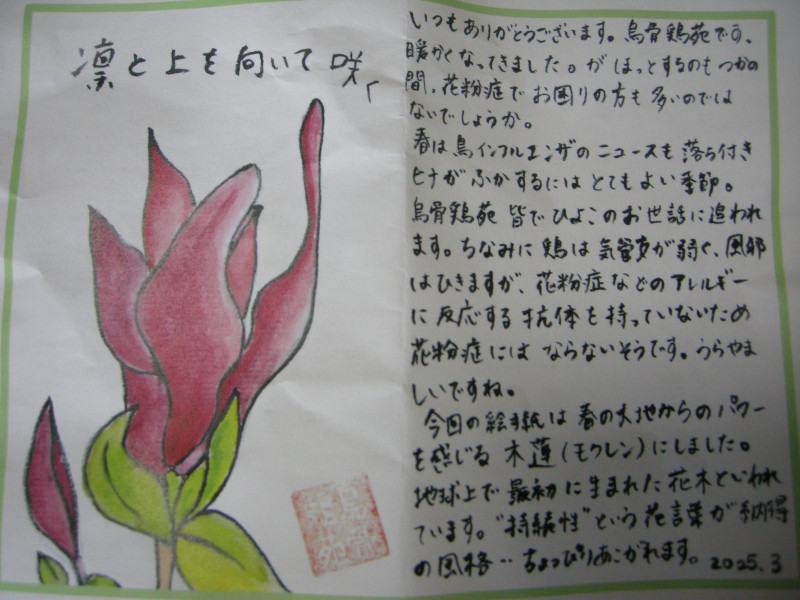 凛と上を向いて咲く
いつもありがとうございます。烏骨鶏苑です。
暖かくなってきました。が ほっとするのも つかの
間、花粉症で お困りの方も 多いのでは
ないでしょうか。
春は鳥インフルエンザの ニュースも 落ち付き
ヒナが ふかするには とてもよい 季節。
烏骨鶏苑 皆で ひよこの お世話に 追われ
ます。ちなみに 鶏は 気管支が弱く、風邪
はひきますが、花粉症などの アレルギー
に 反応する 抗体を 持っていないため
花粉症には ならないそうです。うらやま
しいですね。
今回の絵手紙は 春の大地からの パワー
を感じる 木蓮（モクレン）にしました。
地球上で 最初に生まれた 花木といわれ
ています。"持続性"という 花言葉が 納得
の風格… ちょっぴりあこがれます。 2025.3